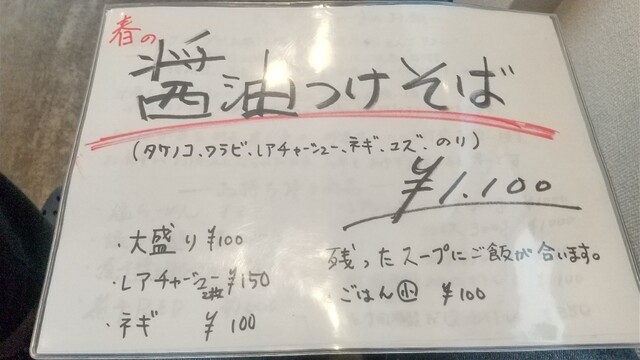 春の
醤油つけそば
(タケノコ、ワラビ、レアチャーシュー、ネギ、ユズ、のり)
¥1.100
・大盛り ¥100
・レアチャーシュー2枚 ¥150
・ネギ ¥100
残ったスープにご飯が合います。
・ごはん小 ¥100